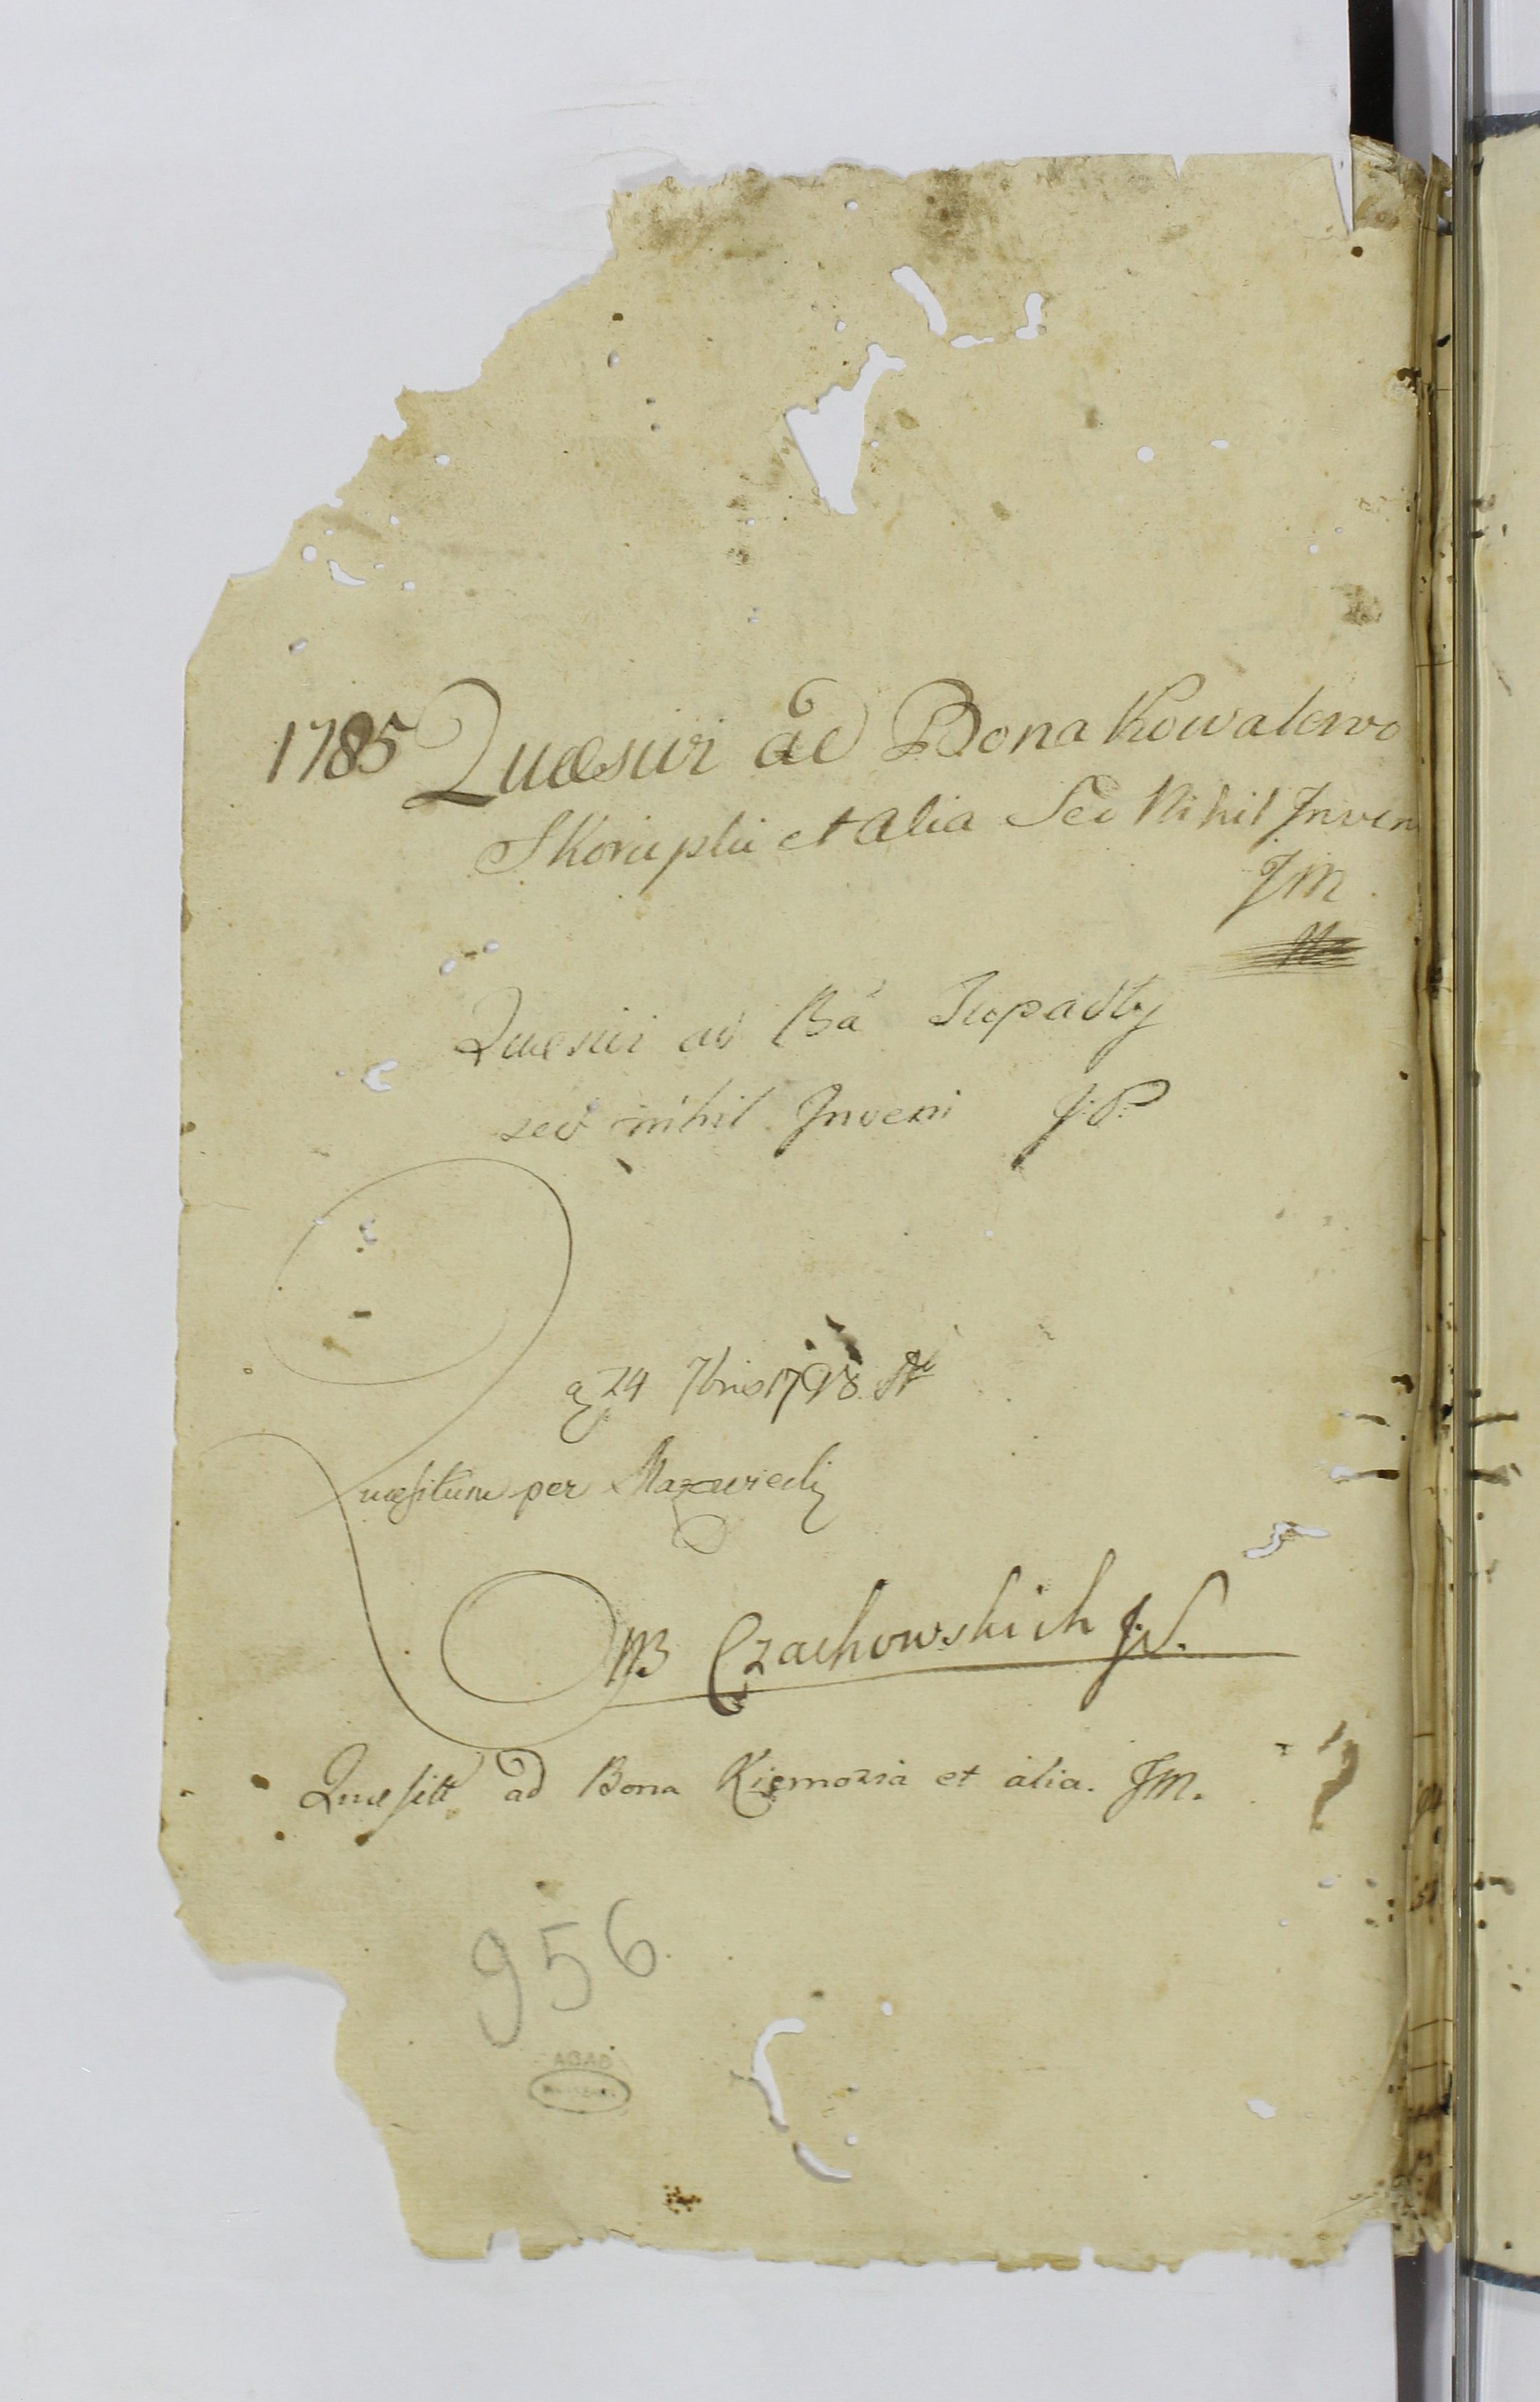 1785 Quæsivi ad Bona Kowalewo
Skorupki et alia Sed Nihil Inven
JM
Quæsivi ad Bá Łopadty
sed nihil Inveni J:P.
24 7bris 1798
Quæsitum per
NB Czachowskich J.S.
Quæsitt ad Bona Kiemozia et alia. JM.
956
AGAD